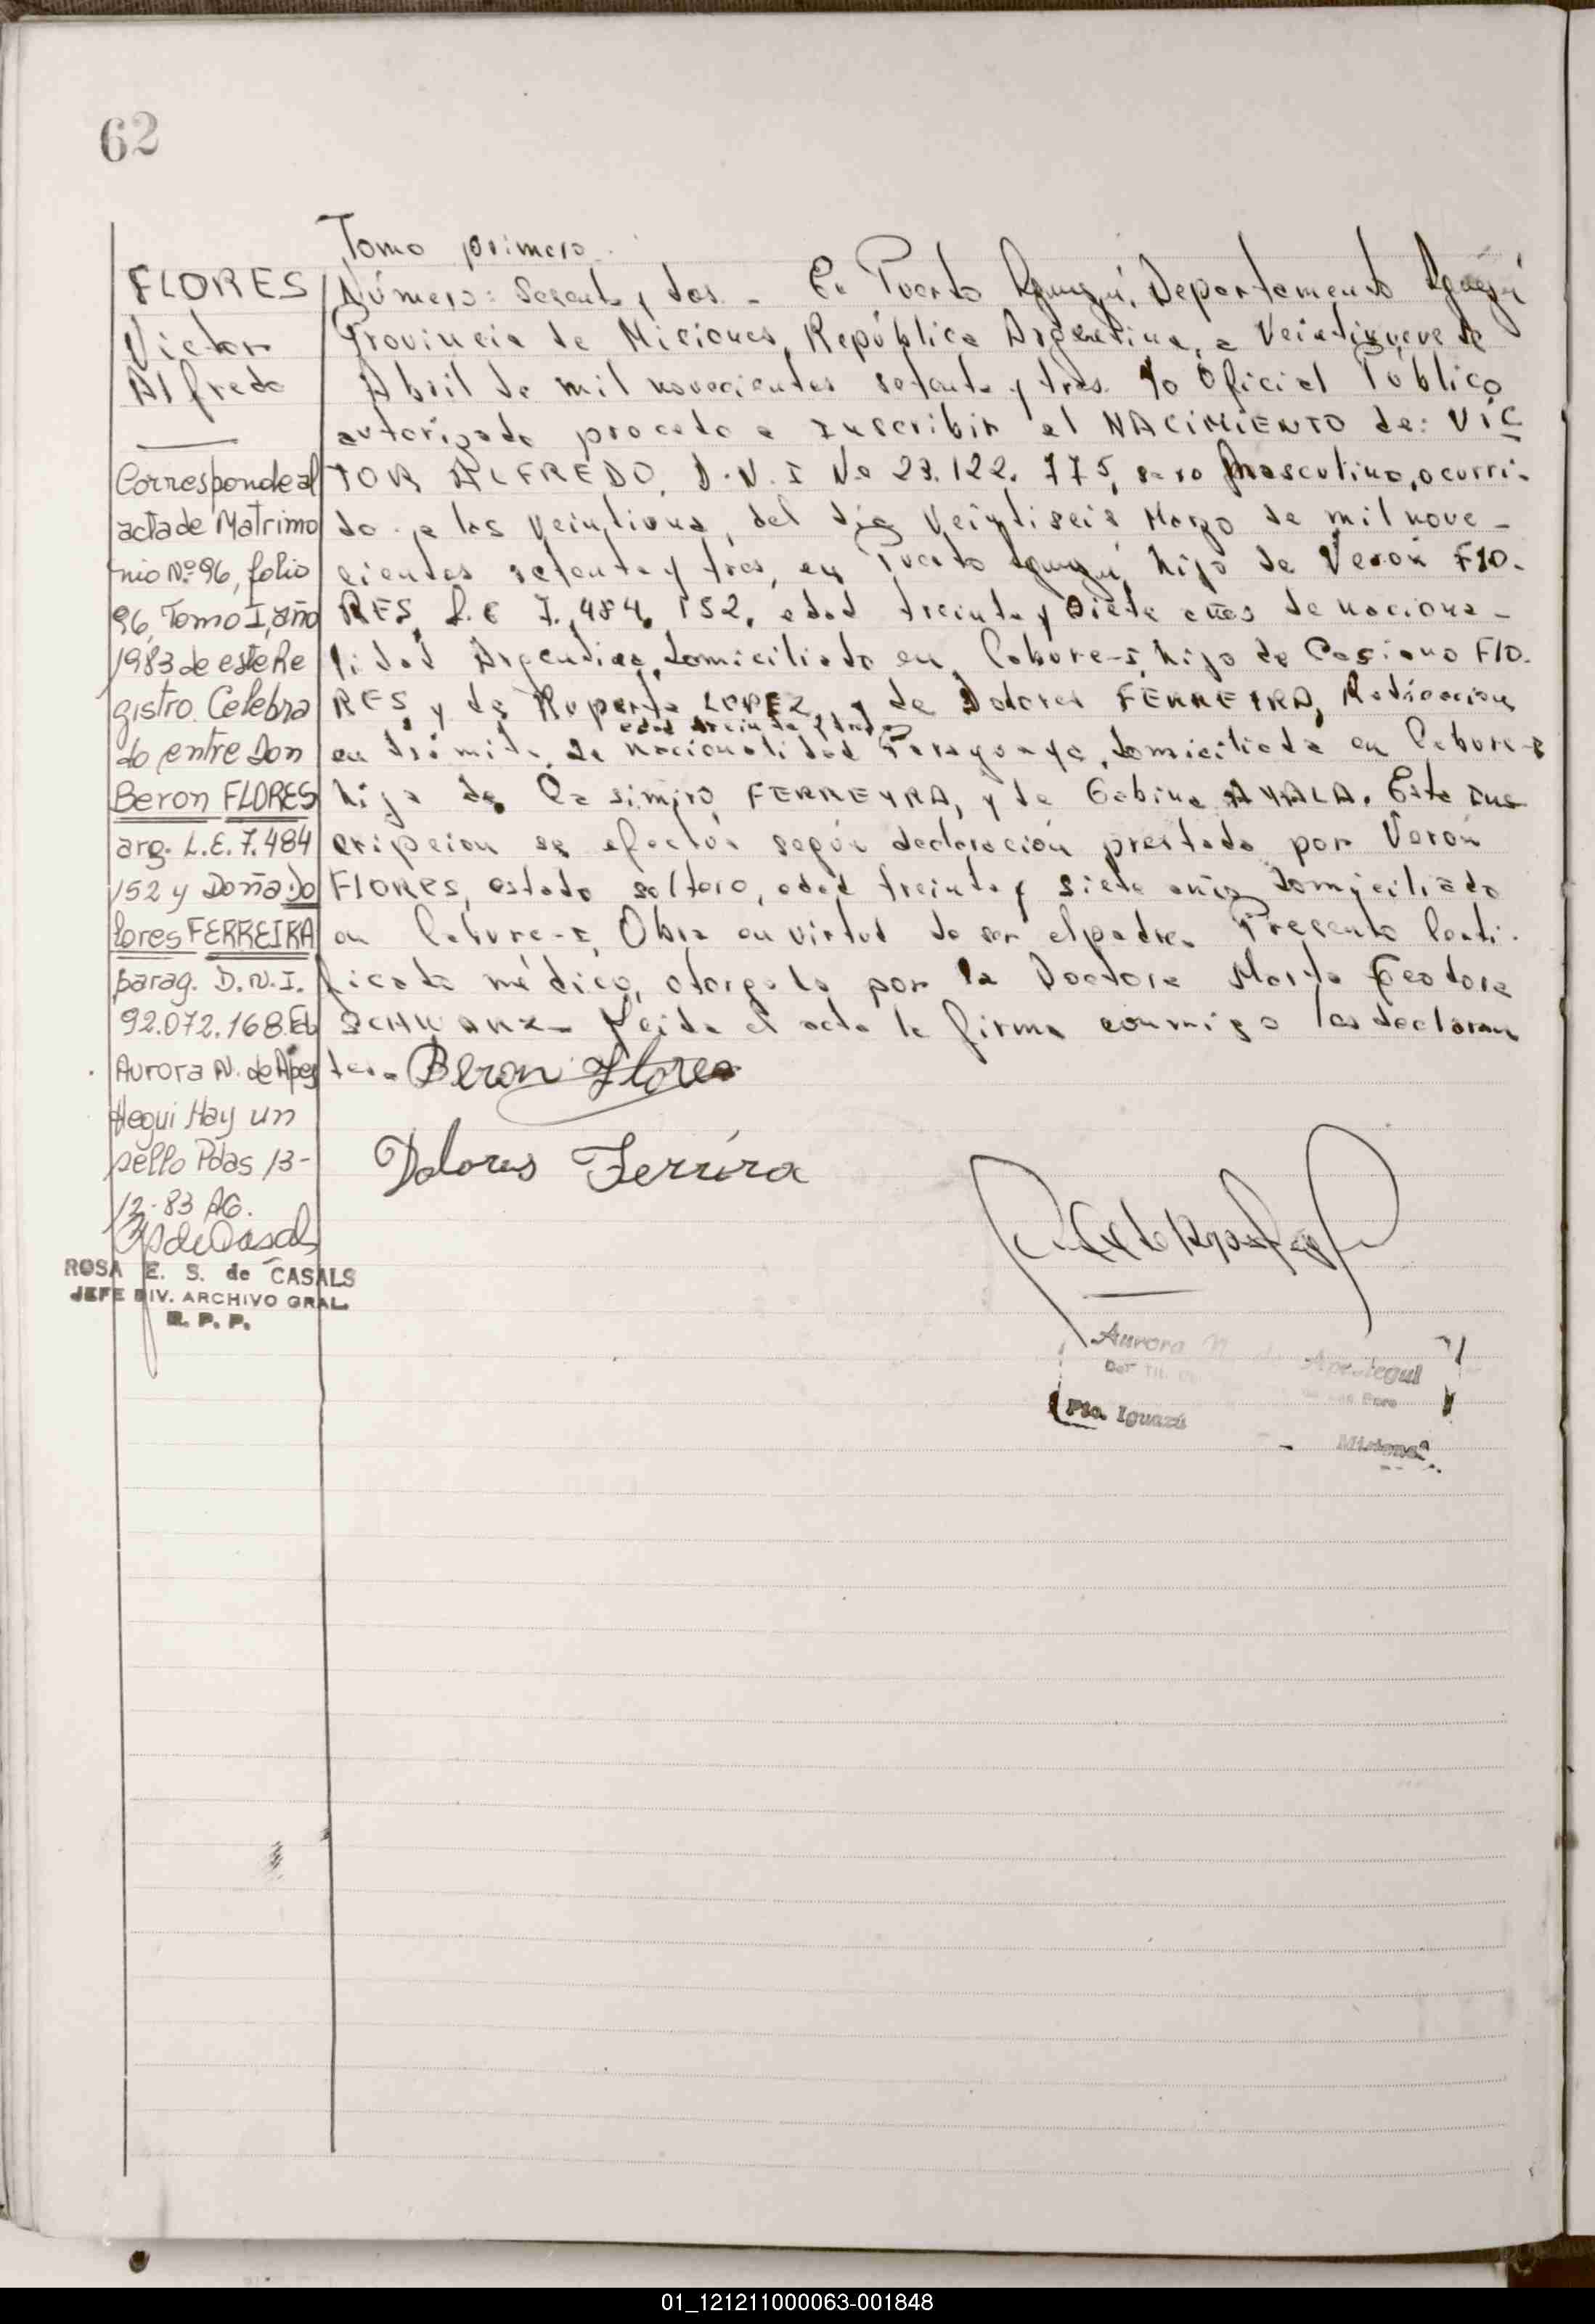 62
FLORES
Victor
Alfredo
Corresponde al
acta de Matrimo
nio Nº 96, folio
96, Tomo I, año
1983 de este Re
gistro. Celebra
do entre Don
Beron FLORES
arg. L.E. 7.484
152 y Doña Do
lores FERREIRA
parag. D.N.I.
92.072.168.
Aurora N. de Apes
tegui Hay un
sello Pdas 13-
12-83 AG.
ROSA E. S. de CASALS
JEFE DIV. ARCHIVO GRAL.
R. P. P.
Tomo primero.
Número: Sesenta y dos. - En Puerto Iguazú, Departamento Iguazú
Provincia de Miciones, República Argentina, a Veintinueve de
Abril de mil novecientos setenta y tres. Yo Oficial Público
autorizado procedo a Inscribir el NACIMIENTO de: VIC
TOR ALFREDO, D.N.I No 23.122.775, sexo Masculino, ocurri-
do a las veintiuna, del día Veintiseis Marzo de mil nove-
cientos setenta y tres, en Puerto Iguazú, hijo de Verón FLO-
RES, L.E 7.484.152, edad treinta y siete años de naciona-
lidad Argentina, domiciliado en Cabure-i, hijo de Casiano FLO-
RES, y de Ruperta LOPEZ, y de Dolores FERREIRA, Radicacion
edad treinta y tres
en trámite, de nacionalidad Paraguaya, domiciliada en Cabure-i
hija de Casimiro FERREYRA, y de Gabina AYALA. Esta Ins
cripcion se efectúa según declaración prestada por Verón
FLORES, estado soltero, edad treinta y siete años domiciliado
en Cabure-i, Obra en virtud de ser el padre. Presenta Certi-
ficado médico, otorgado por la Doctora Marta Teodora
SCHWARZ- Leida el acta la firma conmigo los declaran
tes. Beron Flores
Dolores Ferrira
Aurora N. de Apestegui
Pto. Iguazú - Misiones
01_121211000063-001848